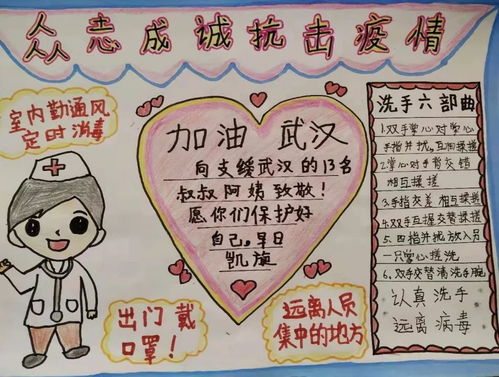 众志成诚抗击疫情
室内勤通风
定时消毒
加油 武汉
向支缓武汉的13名
叔叔阿姨致敬！
愿你们保护好
自己。早日
凯旋
出门戴
口罩！
远离人员
集中的地方
洗手六部曲
1.双手掌心对掌心
手指并拢，互相揉搓
2.掌心对手背交错
相互揉搓
3.手指交差 相互揉搓
4.双手互握交替揉搓
5.四指并拢放入另
一只掌心搓洗
6、双手交替清洗手腕
认真洗手
远离病毒